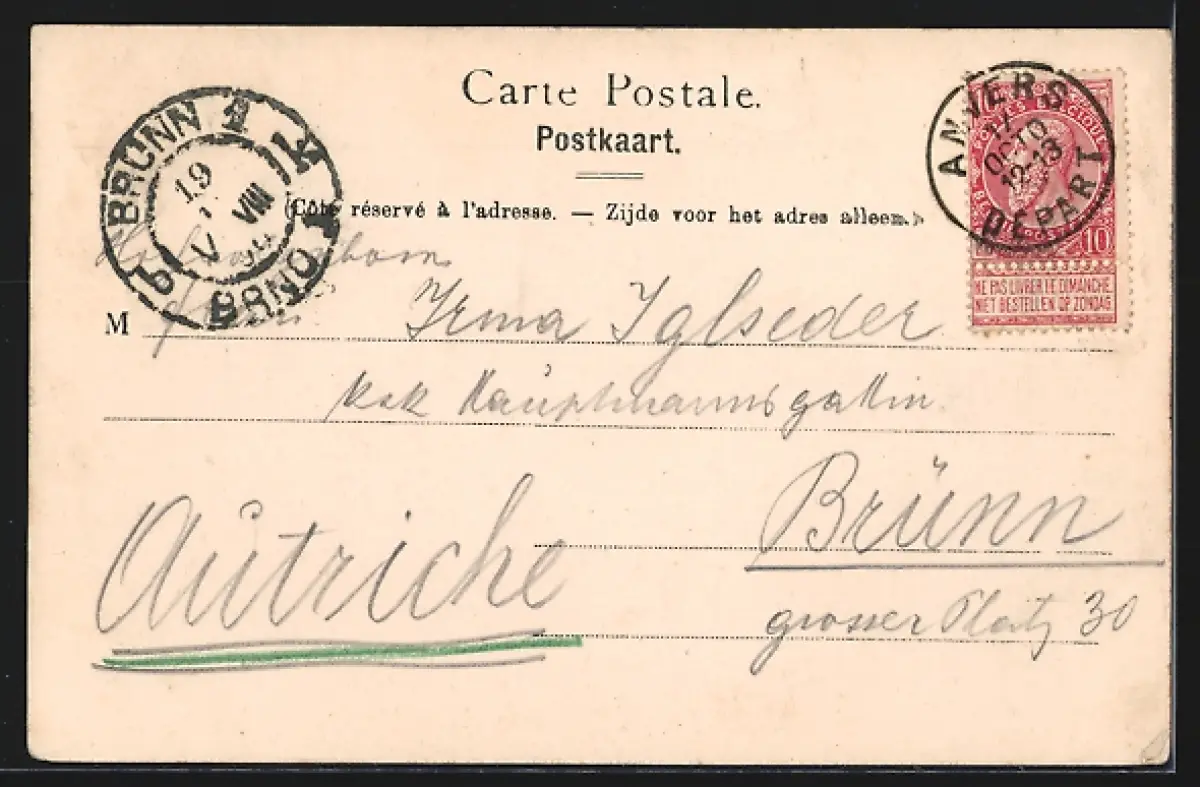 Carte Postale.
Postkaart.
(Côté réservé à l'adresse. — Zijde voor het adres alleen.)
BRÜNN 1
19
V VIII
BRNO 1
ANVERS
OCTO
12-13
DÉPART
POSTES BELGIQUE
10
NE PAS LIVRER LE DIMANCHE
NIET BESTELLEN OP ZONDAG
M
Irma Iglseder
k u k Hauptmannsgattin
Brünn
Autriche
grosser Platz 30